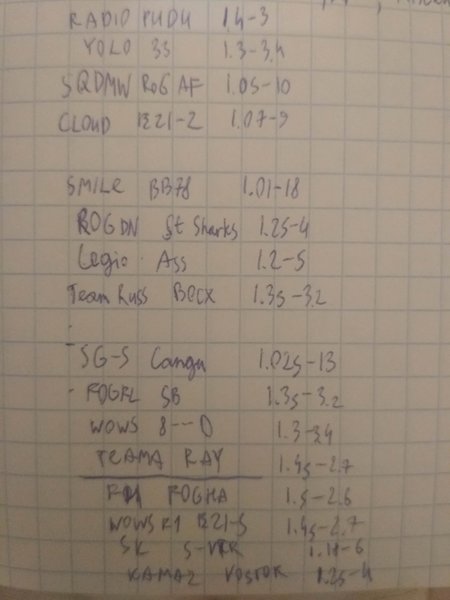 RADIO 1.4-3
YOLO 3S 1.3-3.4
SQDMW RoG AF 1.05-10
CLOUD B21-2 1.07-9
SMILE BB78 1.01-18
ROG DN St Sharks 1.25-4
Legio Ass 1.2-5
Team Russ 1.35-3.2
SG-S Canga 1.025-13
SB 1.35-3.2
WOWS 8---D 1.3-3.4
TEAMA RAY 1.45-2.7
ROGHA 1.5-2.6
WOWS B21-S 1.45-2.7
SK
KAMAZ VOSTOK 1.25-4